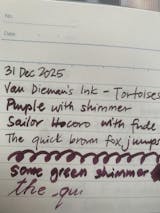 No.
Date
31 Dec 2025
Van Dieman's Ink - Tortoises
Purple with shimmer
Sailor Hocoro with fude
The quick brown fox jumps
some green shimmer
the qui